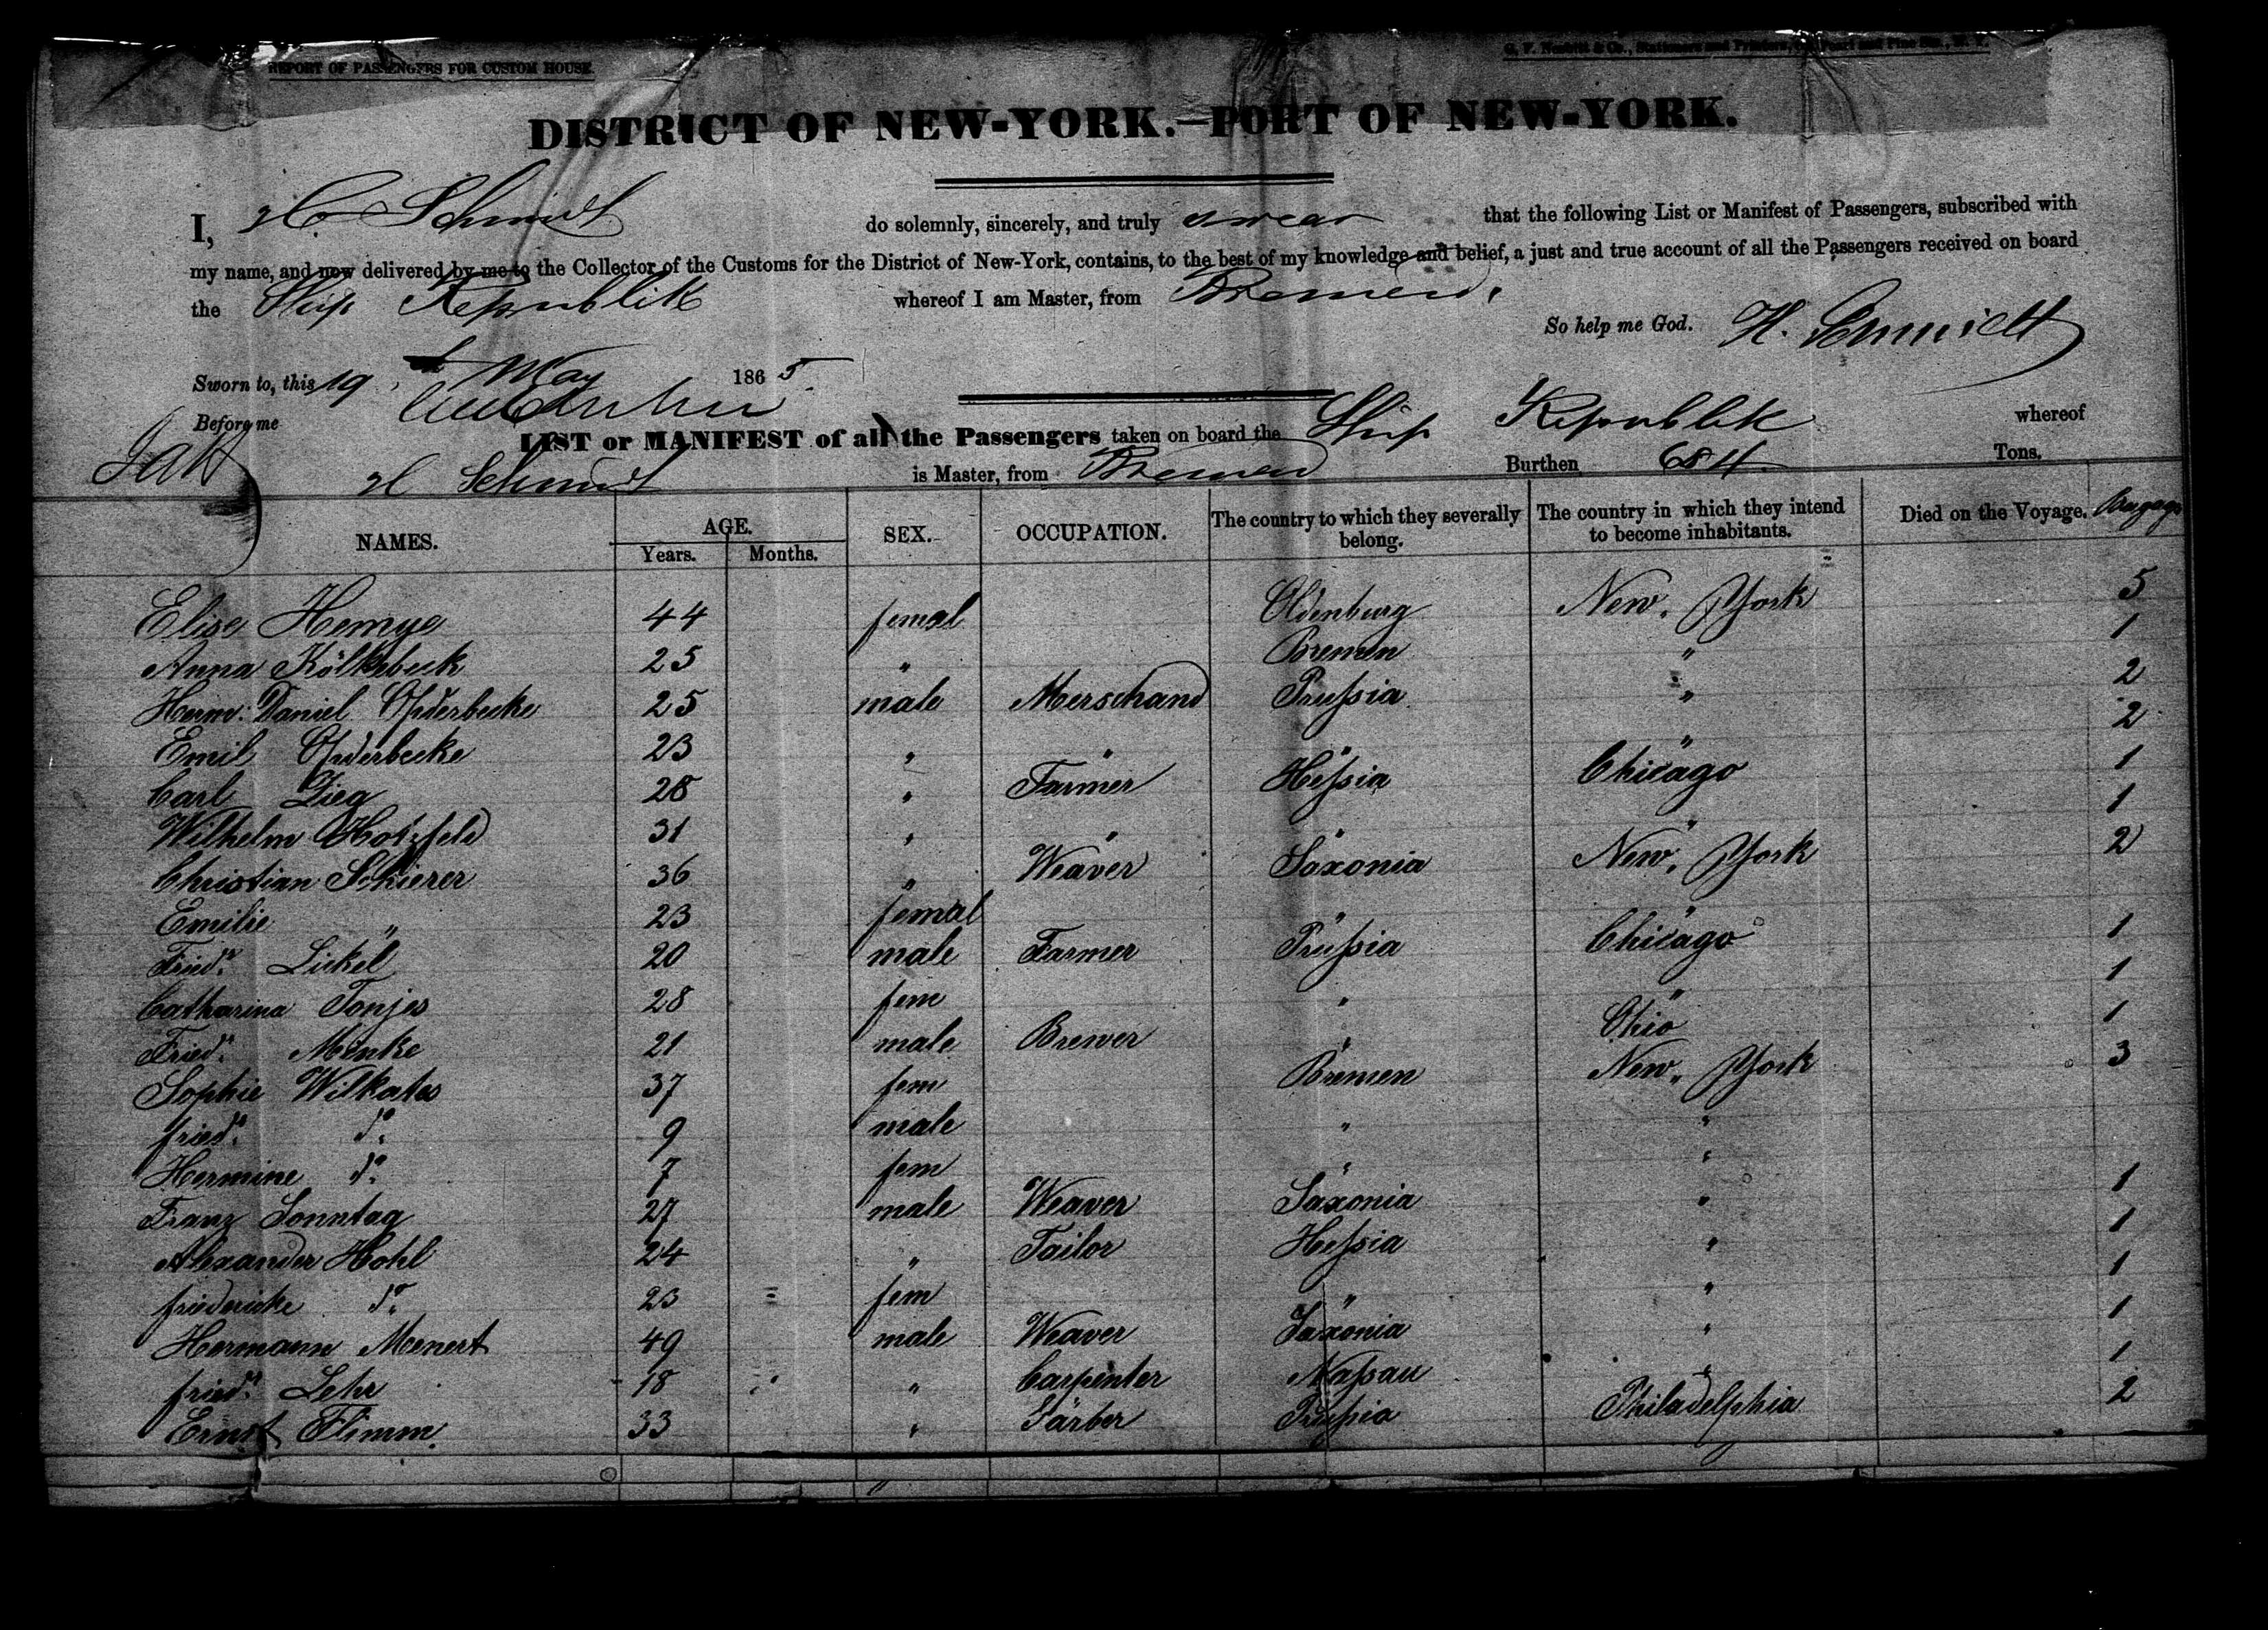 REPORT OF PASSENGERS FOR CUSTOM HOUSE.
G. F. Nesbitt & Co., Stationers and Printers, Pearl and Pine Sts., N. Y.
DISTRICT OF NEW-YORK.—PORT OF NEW-YORK.
I, H. Schmidt do solemnly, sincerely, and truly swear that the following List or Manifest of Passengers, subscribed with
my name, and now delivered by me to the Collector of the Customs for the District of New-York, contains, to the best of my knowledge and belief, a just and true account of all the Passengers received on board
the Ship Republik whereof I am Master, from Bremen.
So help me God. H. Schmidt
Sworn to, this 19 May 1865.
Before me
LIST or MANIFEST of all the Passengers taken on board the Ship Republik whereof
H Schmidt is Master, from Bremen Burthen 684 Tons.
NAMES. AGE. Years. Months. SEX. OCCUPATION. The country to which they severally belong. The country in which they intend to become inhabitants. Died on the Voyage. Bagage
Elise Hemye 44 femal Oldenburg New York 5
Anna Kölkebeck 25 " Bremen " 1
Herm: Daniel Opderbecke 25 male Merschand Prußia " 2
Emil Opderbecke 23 " " " " 2
Carl Zieg 28 " Farmer Heßia Chicago 1
Wilhelm Hotzfeld 31 " " " " 1
Christian Schierer 36 " Weaver Saxonia New York 2
Emilie " 23 femal " "
Friedr. Lickel 20 male Farmer Prußia Chicago 1
Catharina Tonjes 28 fem " " 1
Friedr. Menke 21 male Brewer " Ohio 1
Sophie Wilkates 37 fem Bremen New York 3
friedr. do. 9 male " "
Hermine do. 7 fem " "
Franz Sonntag 27 male Weaver Saxonia " 1
Alexander Hohl 24 " Tailor Heßia " 1
friedericke do. 23 fem " " 1
Hermann Menert 49 male Weaver Saxonia " 1
friedr. Lehr 18 " Carpenter Naßau " 1
Ernst Flimm 33 " Färber Prußia Philadelphia 2